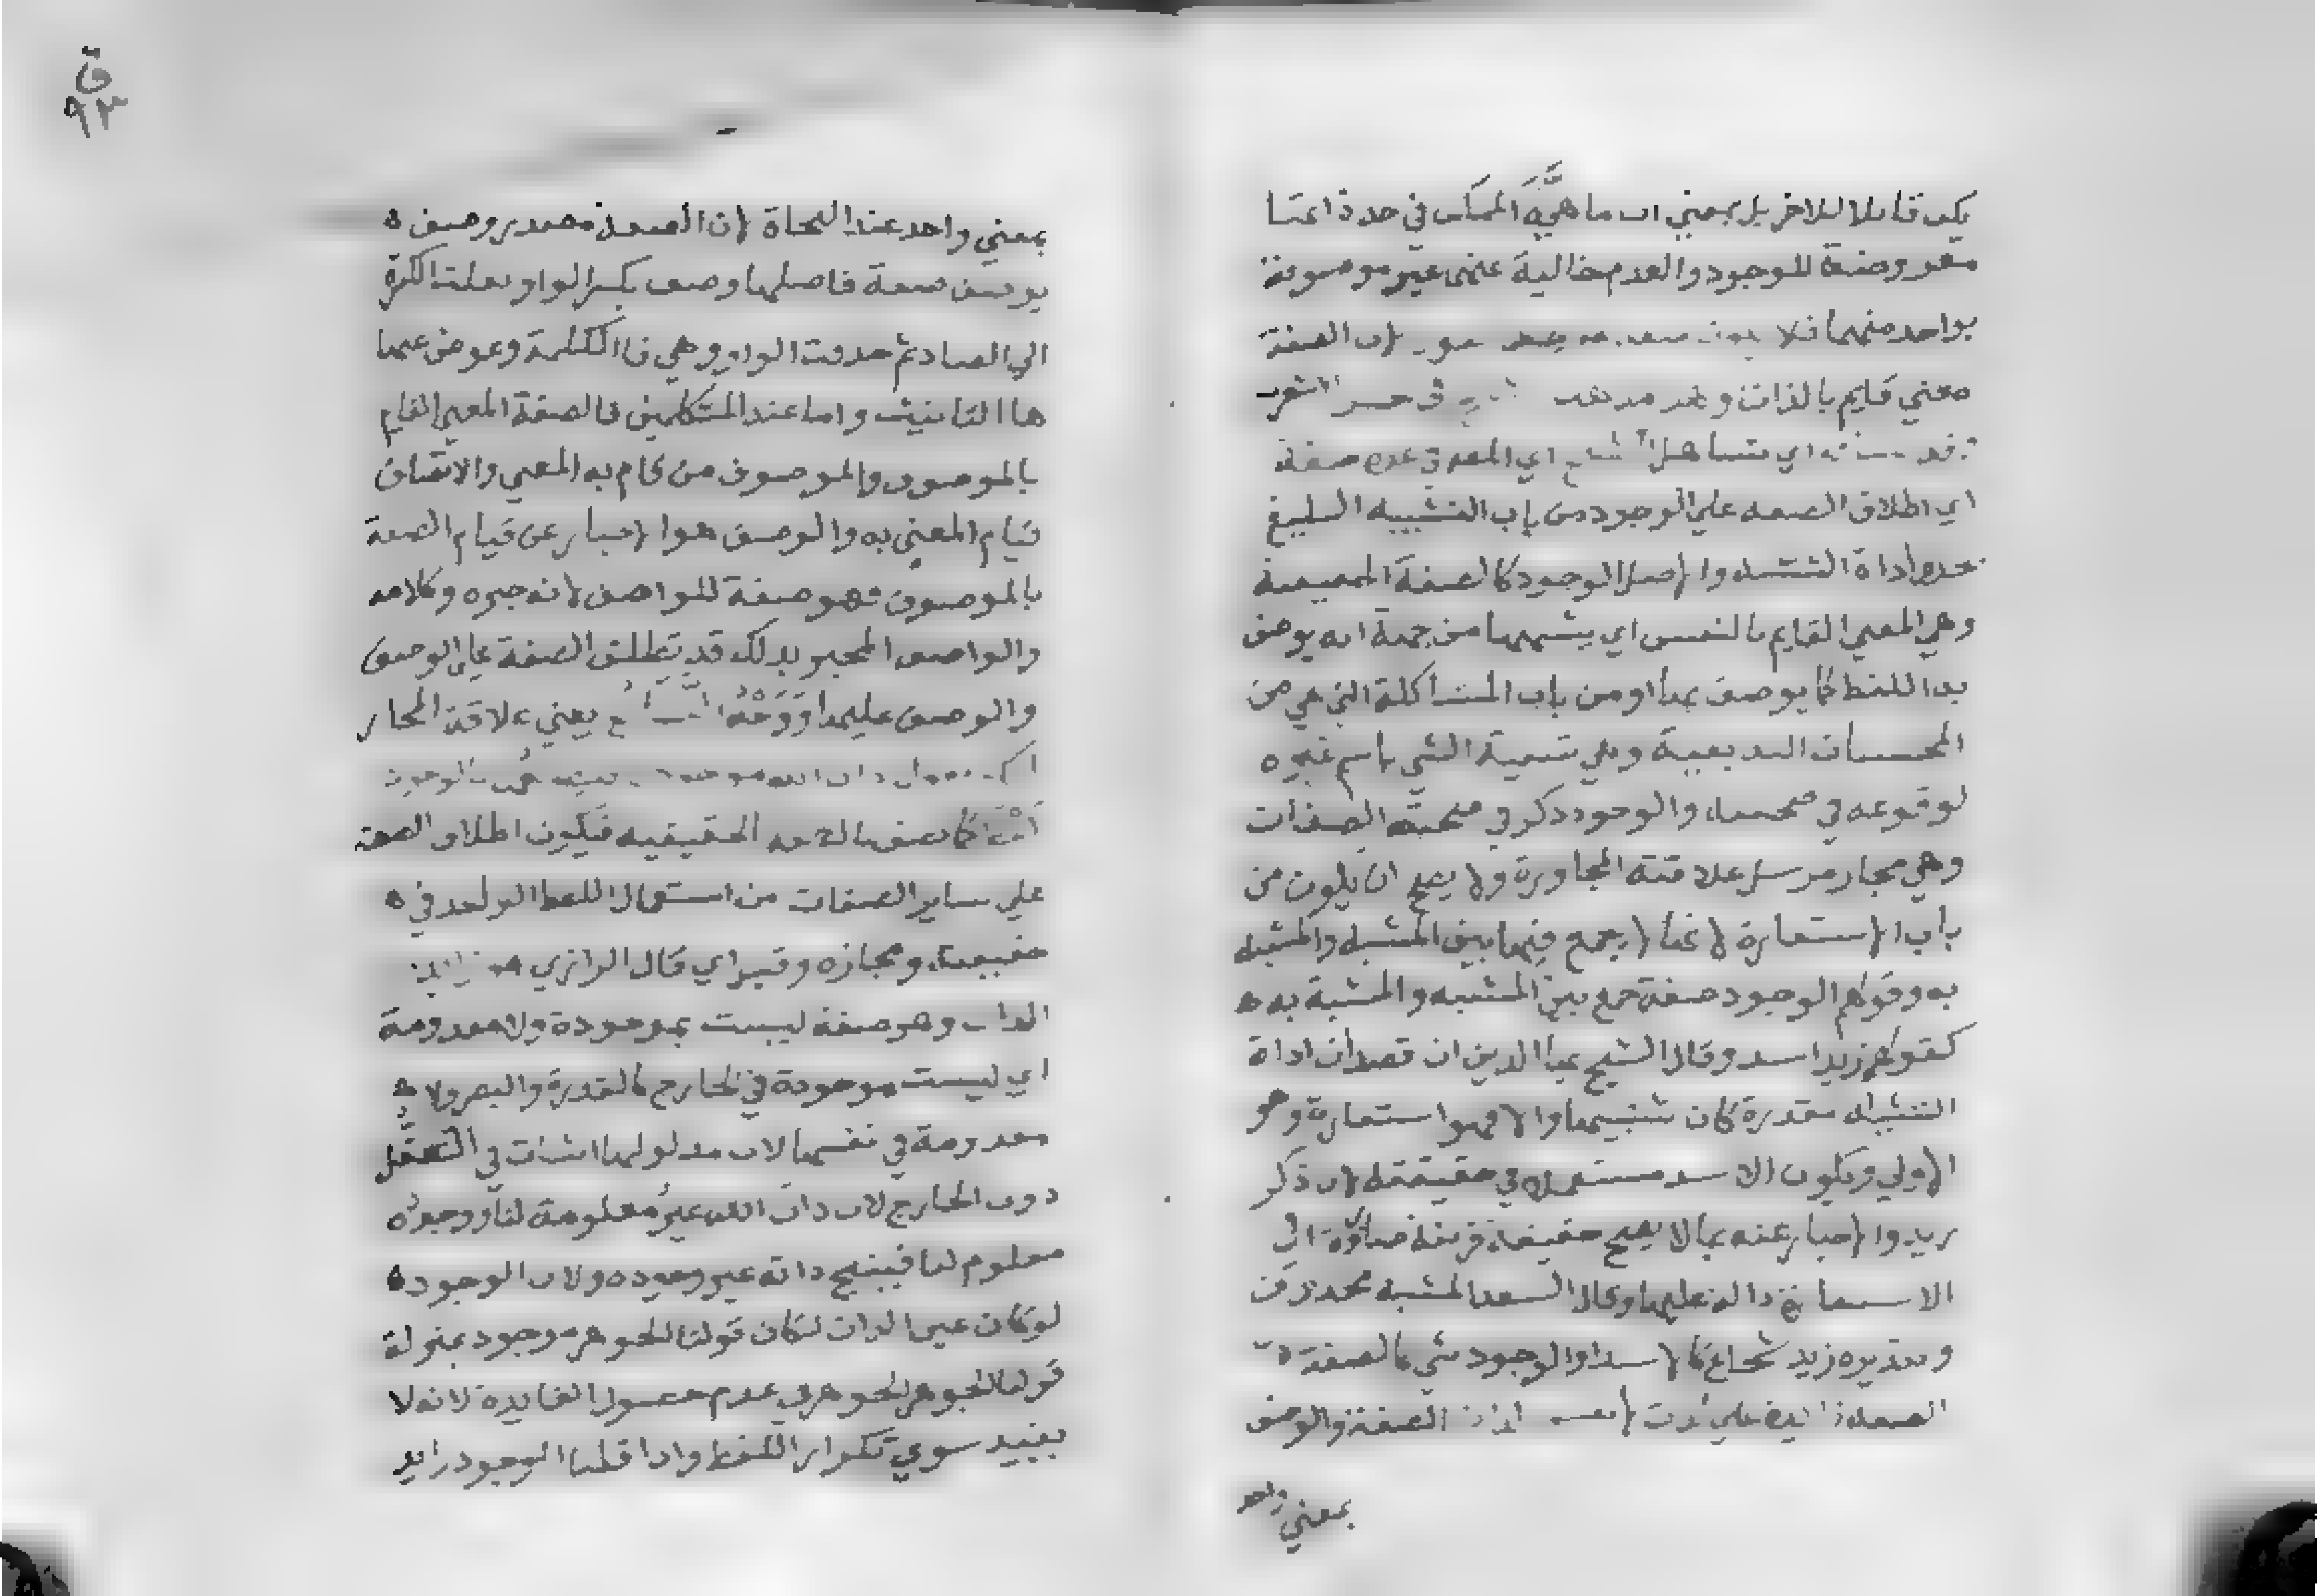 يكن قابلا للاخر بل بمعني ان ماهيَّة الممكن في حد ذاتها
معروضة للوجود والعدم خالية عنهما غير موصوفة
بواحد منهما فلا لان الصفة
معني قايم بالذات
اي تساهل اي المص في عده صفة
اي اطلاق الصفه علي الوجود من باب التشبيه البليغ
بحذف اداة التشبيه والاصل الوجود كالصفة الحقيقية
وهي المعني القايم بالنفس اي يشبهها من جهة انه يوصف
بهذا اللفظ كما يوصف بها او من باب المشاكلة التي هي من
المحسنات البديعية وهي تسمية الشي باسم غيره
لوقوعه في صحبته والوجود ذكر في صحبة الصفات
وهي مجاز مرسل علاقته المجاورة ولا يصح ان يكون من
باب الاستعارة لانها لا يجمع فيها بين المشبه والمشبه
به وقولهم الوجود صفة جمع بين المشبه والمشبة به
كقولهم زيد اسد وقال الشيخ بها الدين ان قصد ان اداة
التشبيه مقدرة كان تشبيها والا فهو استعارة وهو
الاولي ويكون الاسد مستعملا في حقيقته لان ذكر
زيد والاخبار عنه بما لا يصح حقيقة قرينة صارفة الي
الاستعارة دالة عليها وقال السعد المشبه محذوف
وتقديره زيد شجاع كالاسد او الوجود شي كالصفة
الصفة زايدة علي الصفة والوصف
بمعني واحد
ق
٩٣
بمعني واحد عند النحاة لان الصفة مصدر وصف
يوصف صفة فاصلها وصف بكسر الواو نقلت الكسرة
الي الصاد ثم حذفت الواو وهي فا الكلمة وعوض عنها
ها التانيث واما عند المتكلمين فالصفة المعني القايم
بالموصوف والموصوف من قام به المعني والاتصاف
قيام المعني به والوصف هو الاخبار عن قيام الصفة
بالموصوف فهو صفة للواصف لانه خبره وكلامه
والواصف المخبر بذلك قد تطلق الصفة علي الوصف
والوصف عليها وَوَجْهُ يعني علاقة المجاز
ان الله موجود بالوجود
كما يصف بالصفة الحقيقيه فيكون اطلاق الصفة
علي ساير الصفات من استعمال اللفظ الواحد في
حقيقته ومجازه وقيل اي قال الرازي هو زايد
الذات وهو صفة ليست بموجودة ولا معدومة
اي ليست موجودة في الخارج كالقدرة والبصر ولا
معدومة في نفسها لان مدلولها اثبات في التعقُّل
دون الخارج لان ذات الله غير معلومة لنا ووجوده
معلوم لنا فينتج ذاته غير وجوده ولان الوجود
لو كان عين الذات لكان قولنا الجوهر موجود بمنزلة
قولنا الجوهر الجوهر في عدم حصول الفايدة لانه لا
يفيد سوي تكرار اللفظ واذا قلنا الوجود زايد